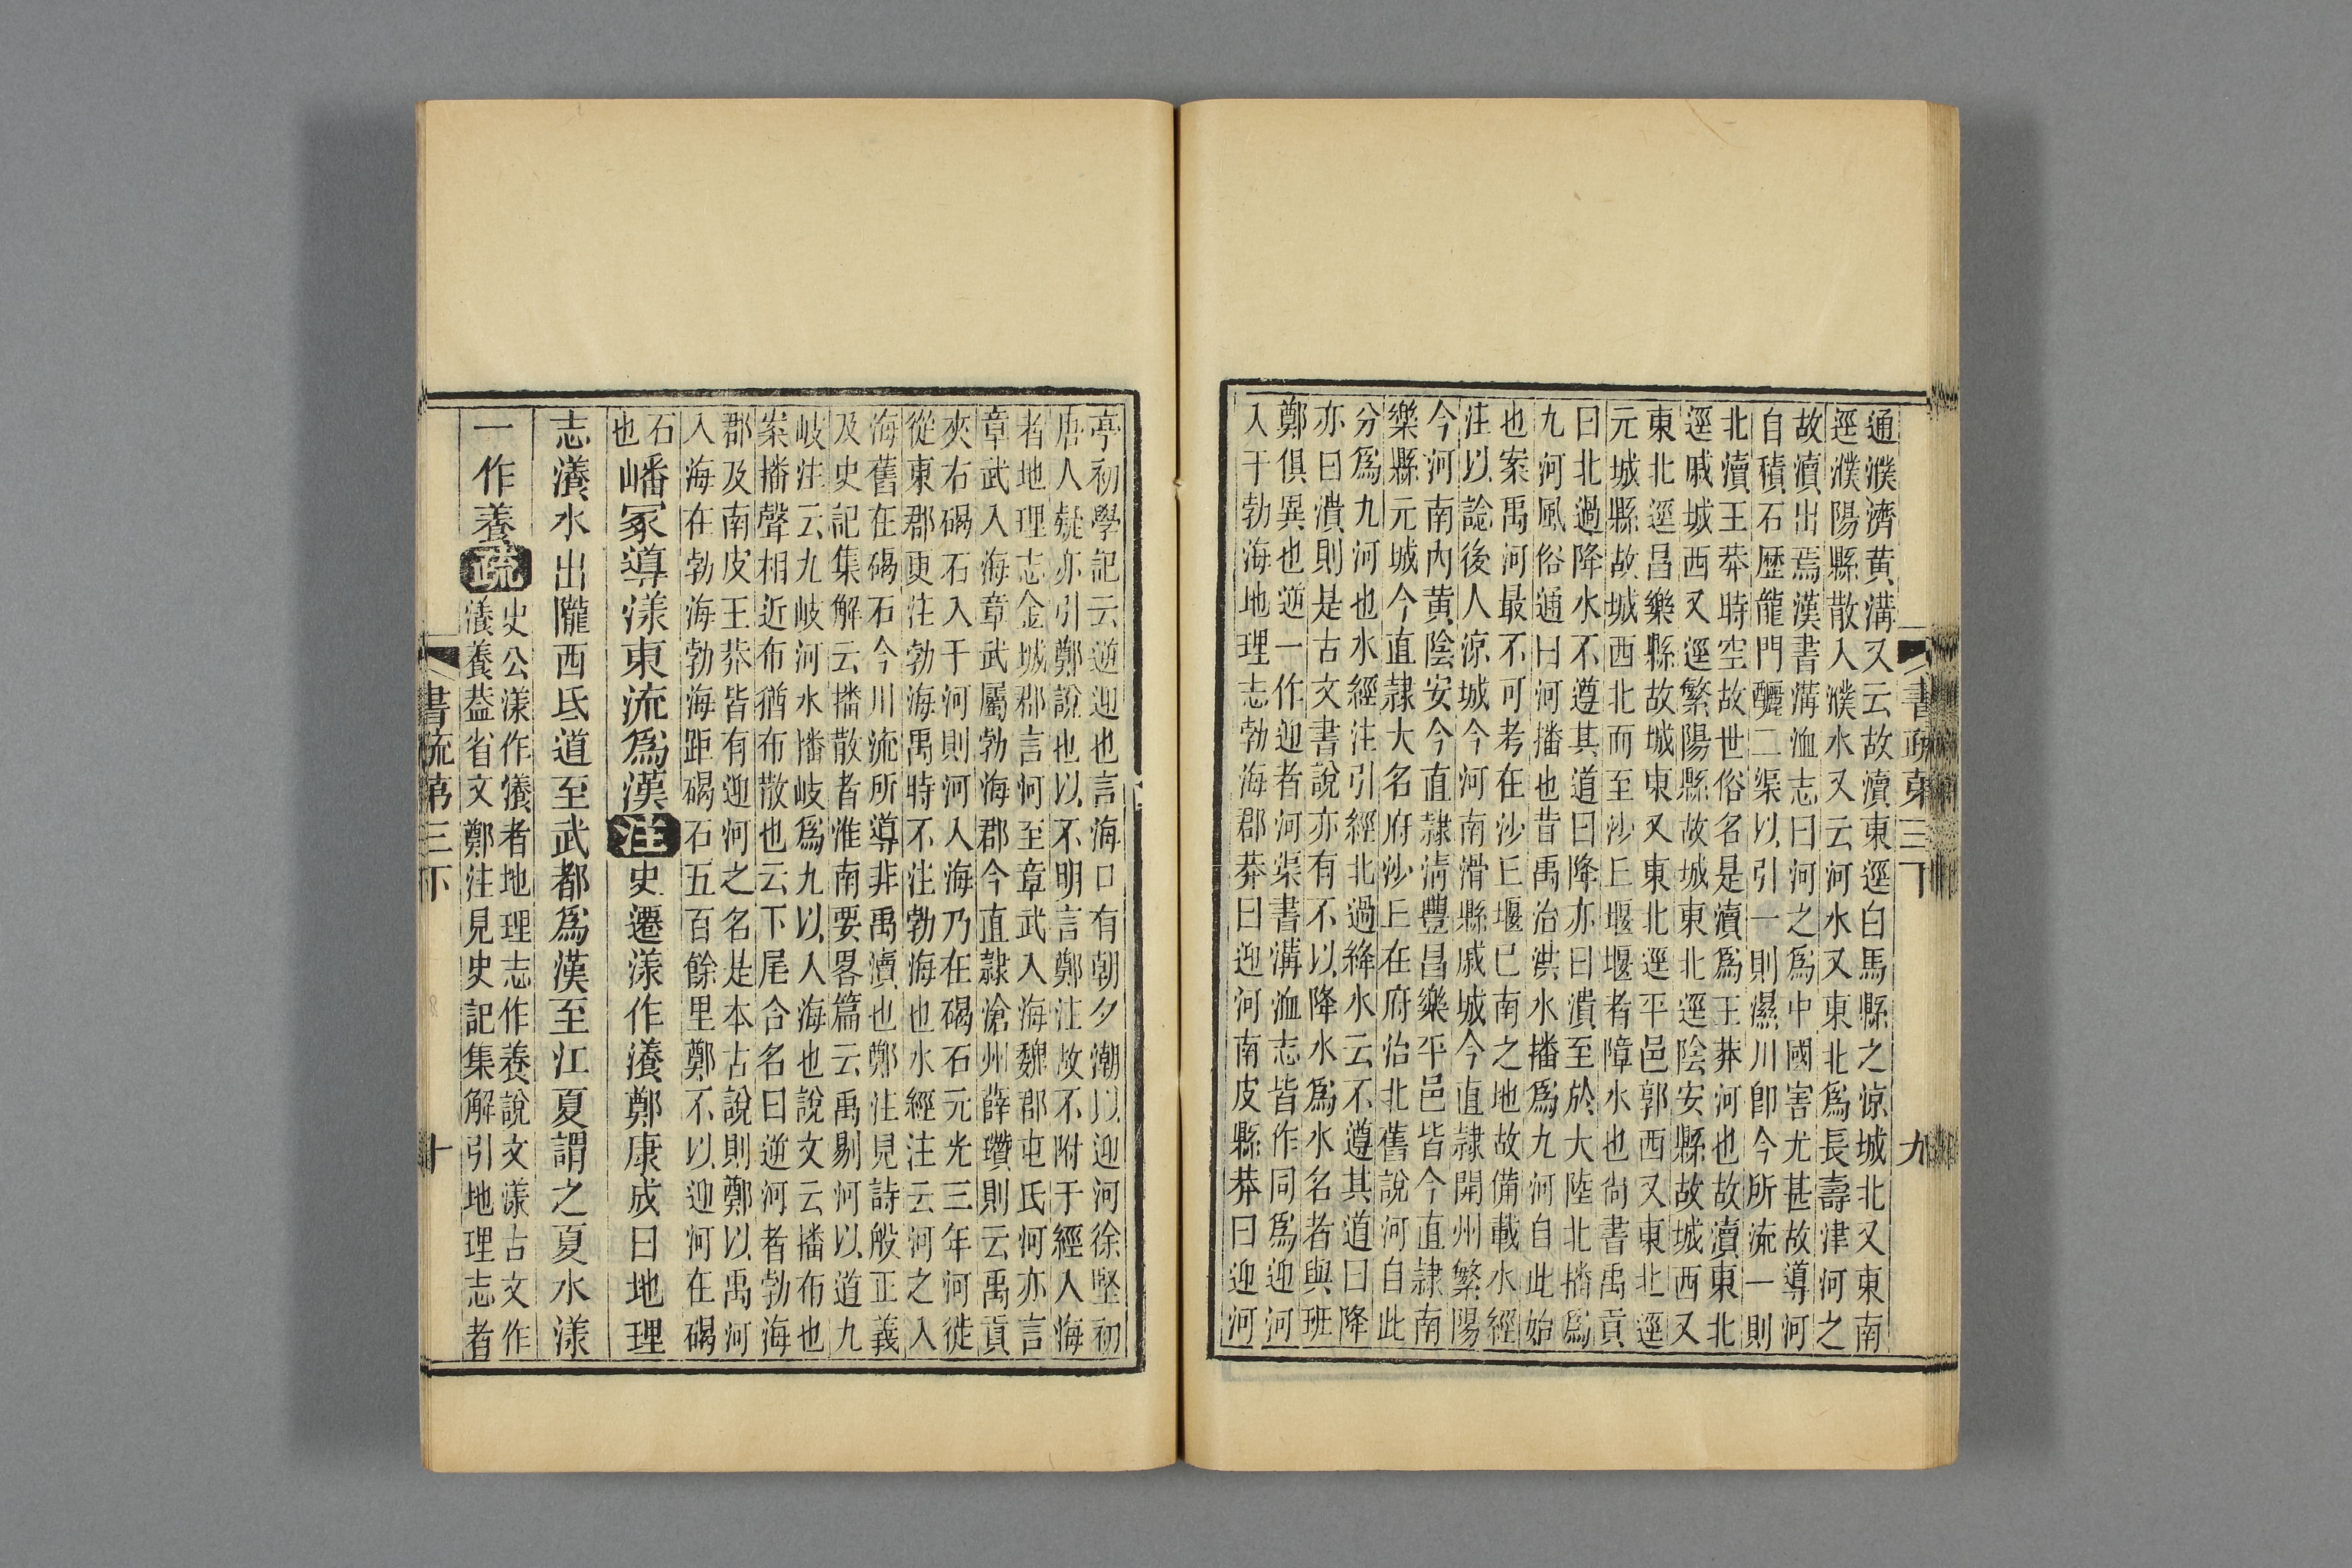 通濮濟黃溝又云故瀆東逕白馬縣之涼城北又東南
逕濮陽縣散入濮水又云河水又東北為長壽津河之
故瀆出焉漢書溝洫志曰河之為中國害尤甚故導河
自積石歷龍門釃二渠以引一則濕川卽今所流一則
北瀆王莽時空故世俗名是瀆為王莽河也故瀆東北
逕戚城西又逕繁陽縣故城東北逕陰安縣故城西又
東北逕昌樂縣故城東又東北逕平邑郭西又東北逕
元城縣故城西北而至沙𠀉堰堰者障水也尙書禹貢
曰北過降水不遵其道曰降亦曰潰至於大陸北播爲
九河風俗通曰河播也昔禹治洪水播爲九河自此始
也案禹河最不可考在沙𠀉堰已南之地故備載水經
注以諗後人涼城今河南滑縣戚城今直隷開州繁陽
今河南內黃陰安今直隷淸豐昌樂平邑皆今直隷南
樂縣元城今直隷大名府沙𠀉在府治北舊說河自此
分爲九河也水經注引經北過絳水云不遵其道曰降
亦曰潰則是古文書說亦有不以降水爲水名者與班
鄭俱異也逆一作迎者河渠書溝洫志皆作同爲迎河
入于勃海地理志勃海郡莽曰迎河南皮縣莽曰迎河
書疏第三下
九
亭初學記云逆迎也言海口有朝夕潮以迎河徐堅初
唐人疑亦引鄭說也以不明言鄭注故不附于經人海
者地理志金城郡言河至章武入海魏郡屯氏河亦言
章武入海章武屬勃海郡今直隷滄州薛瓚則云禹貢
夾右碣石入于河則河入海乃在碣石元光三年河徙
從東郡更注勃海禹時不注勃海也水經注云河之入
海舊在碣石今川流所導非禹瀆也鄭注見詩般正義
及史記集解云播散者淮南要畧篇云禹剔河以道九
岐注云九岐河水播岐爲九以入海也說文云播布也
案播聲相近布猶布散也云下尾合名曰逆河者勃海
郡及南皮王莽皆有迎河之名是本古說則鄭以禹河
入海在勃海勃海距碣石五百餘里鄭不以迎河在碣
石
也嶓冢導漾東流爲漢注史遷漾作瀁鄭康成曰地理
志瀁水出隴西氐道至武都爲漢至江夏謂之夏水漾
一作養疏史公漾作瀁者地理志作養說文漾古文作
瀁養葢省文鄭注見史記集解引地理志者
書疏第三下
十